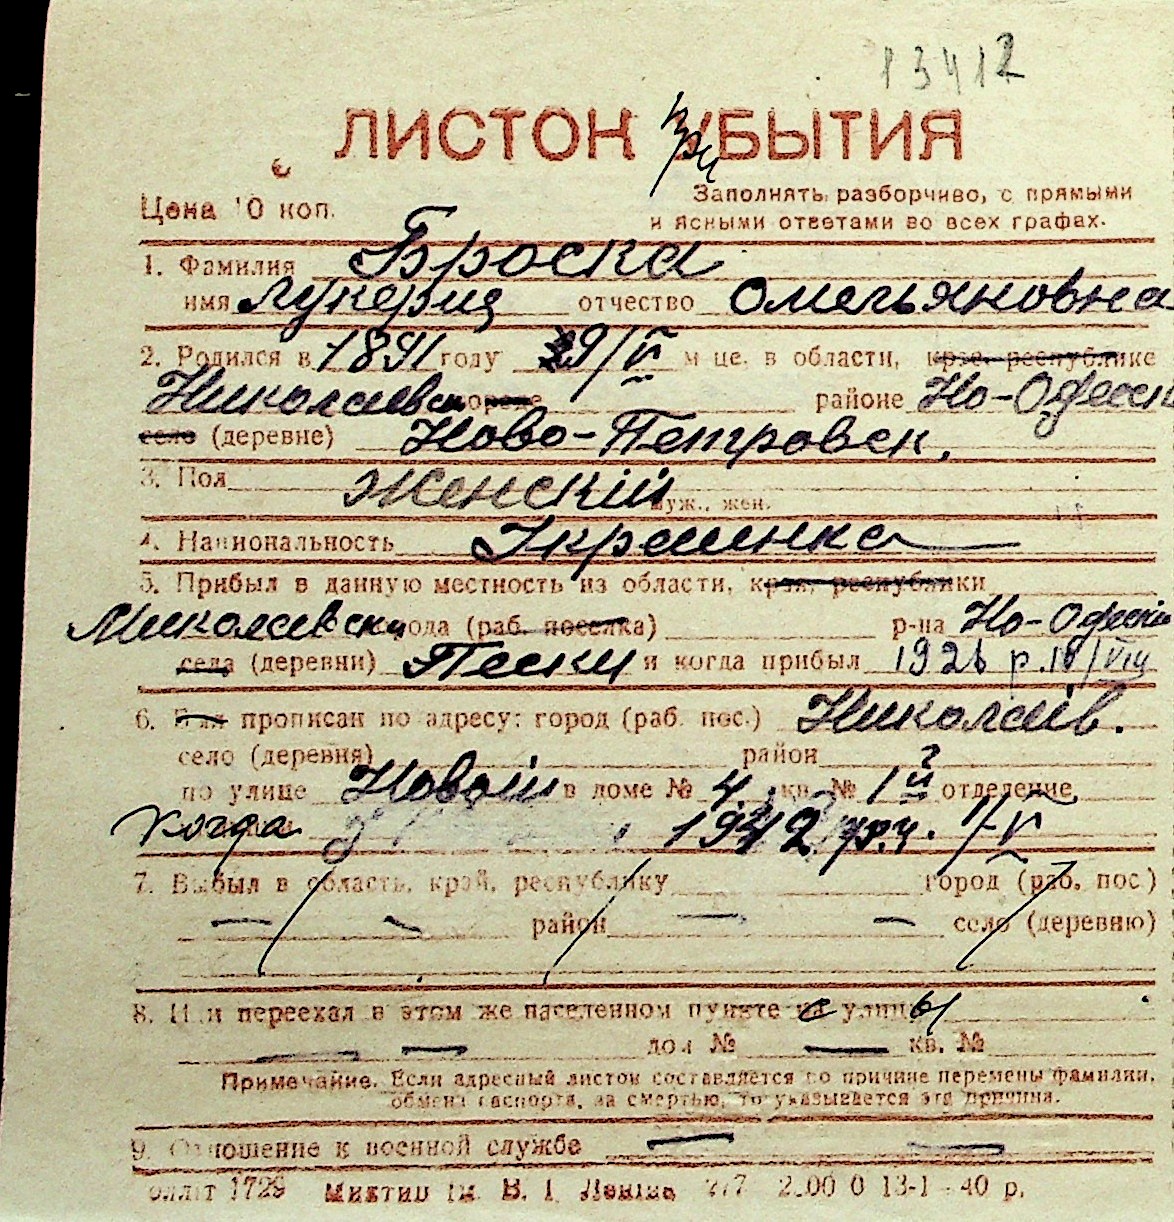 13412
ЛИСТОК при УБЫТИЯ
Цена 10 коп.
Заполнять разборчиво, с прямыми
и ясными ответами во всех графах.
1. Фамилия Броска
имя Лукерия отчество Омельяновна
2. Родился в 1891 году 29/VI м-це, в области, крае, республике
Николаевск городе районе Но-Одесск
селе (деревне) Ново-Петровск,
3. Пол Женский
муж., жен.
4. Национальность Украинка
5. Прибыл в данную местность из области, края, республики
Миколаевски города (раб. поселка) р-на Но-Одеськ
села (деревни) Пески и когда прибыл 1926 р. 18/VIII
6. Был прописан по адресу: город (раб. пос.) Николаїв.
село (деревня) район
по улице Новой в доме № 4, кв. № 1 отделение
когда 1942 р. 1/VI
7. Выбыл в область, край, республику город (раб. пос.)
район село (деревню)
8. Или переехал в этом же населенном пункте с улицы
дом № кв. №
Примечание. Если адресный листок составляется по причине перемены фамилии,
обмена паспорта, за смертью, то указывается эта причина.
9. Отношение к военной службе
1729 им. В. І. Леніна 13-І-40 р.